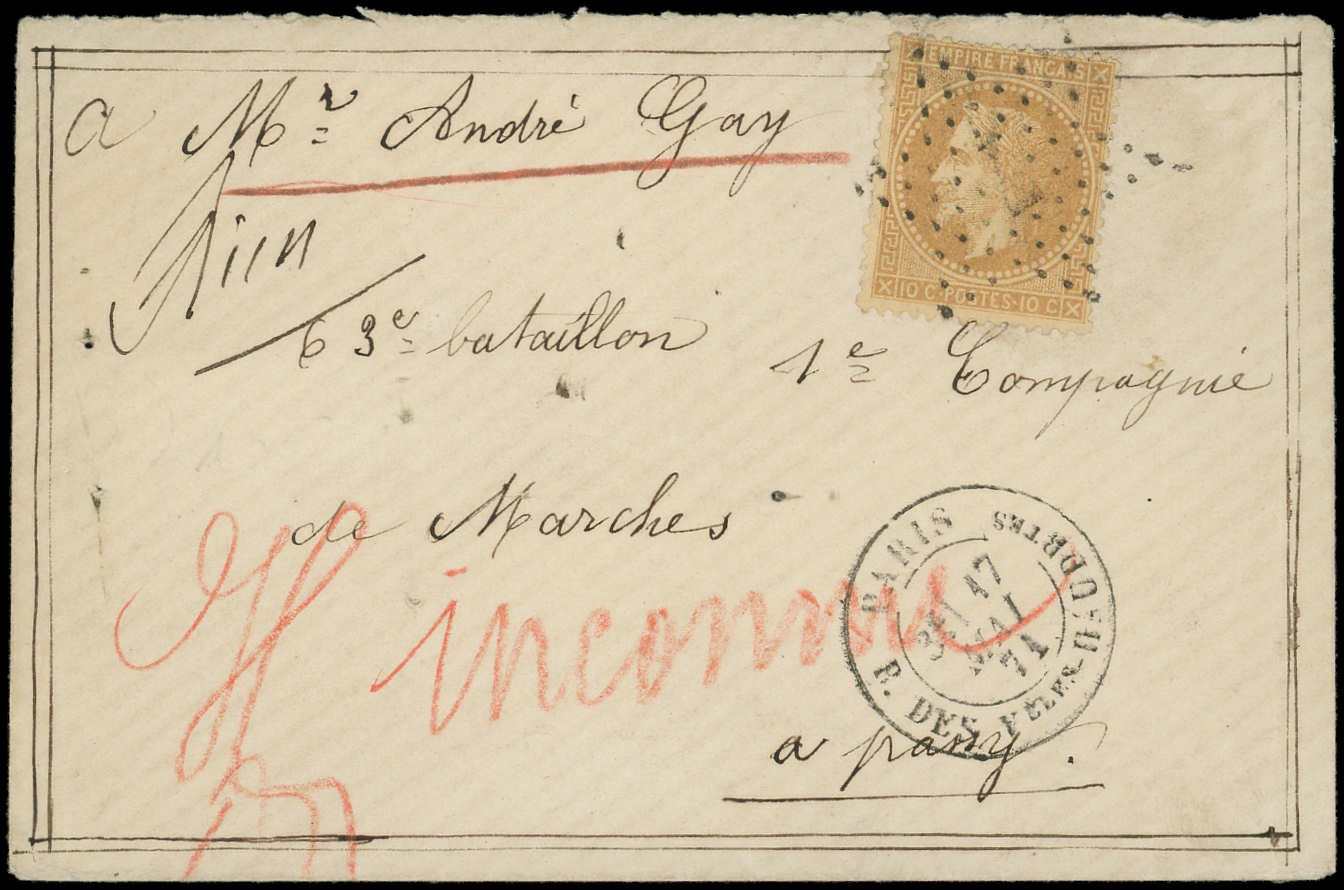 EMPIRE FRANCAIS
10 C · POSTES · 10 C
a Mr André Gay
63e bataillon 1e Compagnie
de Marches
inconnu
PARIS
R. DES VLLES-HAUDRTES
17
MAI
71
a pary.